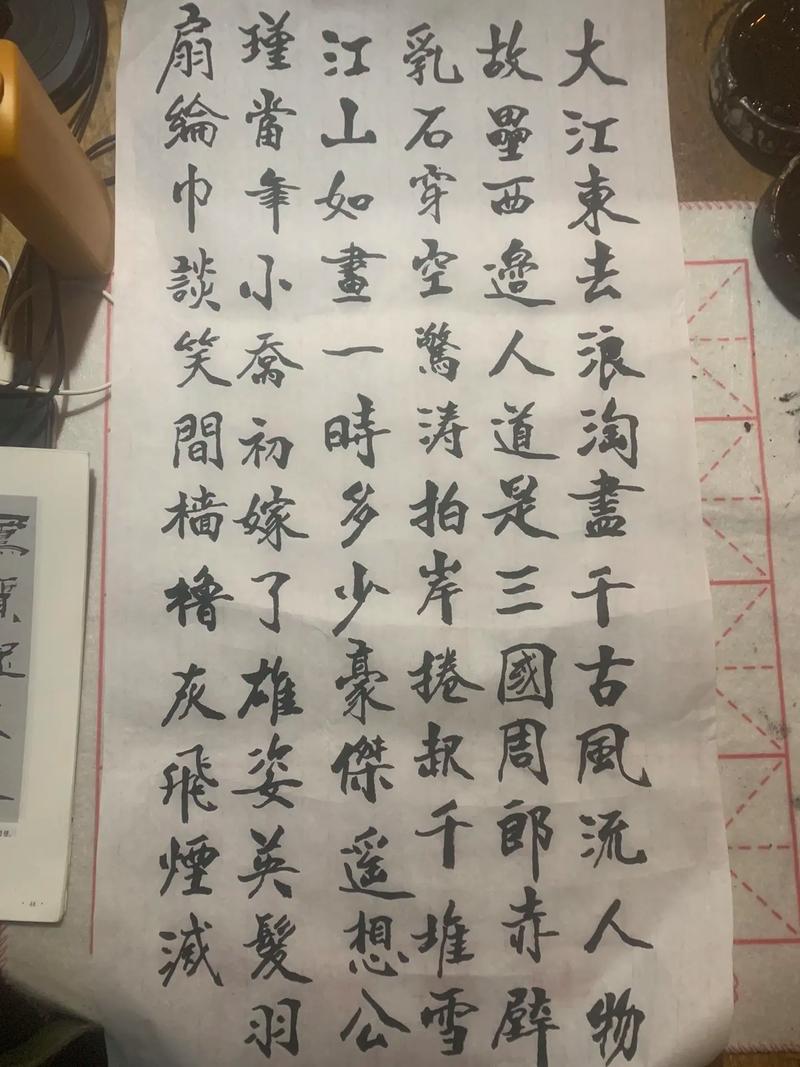 大江東去浪淘盡千古風流人物
故壘西邊人道是三國周郎赤壁
乳石穿空驚涛拍岸捲起千堆雪
江山如畫一時多少豪傑遥想公
瑾當年小喬初嫁了雄姿英髮羽
扇綸巾談笑間檣櫓灰飛煙滅